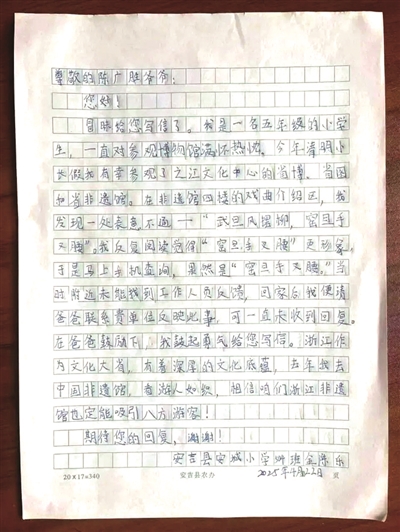 尊敬的陈广胜爷爷：
您好！
冒昧给您写信了。我是一名五年级的小学
生，一直对参观博物馆满怀热忱。今年清明小
长假我有幸参观了之江文化中心的省博、省图
和省非遗馆。在非遗馆四楼的戏曲介绍区，我
发现一处表意不通——“武旦风摆柳，窑旦手
腰”。我反复阅读觉得“窑旦手叉腰”更形象。
于是马上手机查询，果然是“窑旦手叉腰”。当
时附近未能找到工作人员反馈，回家后我便请
爸爸联系贵单位反映此事，可一直未收到回复。
在爸爸鼓励下，我鼓起勇气给您写信。浙江作
为文化大省，有着深厚的文化底蕴，去年我去
中国非遗馆，看游人如织，相信咱们浙江非遗
馆也定能吸引八方游客！
期待您的回复，谢谢！
安吉县安城小学班
2025年4月22日
20×17=340 安吉县农办 页